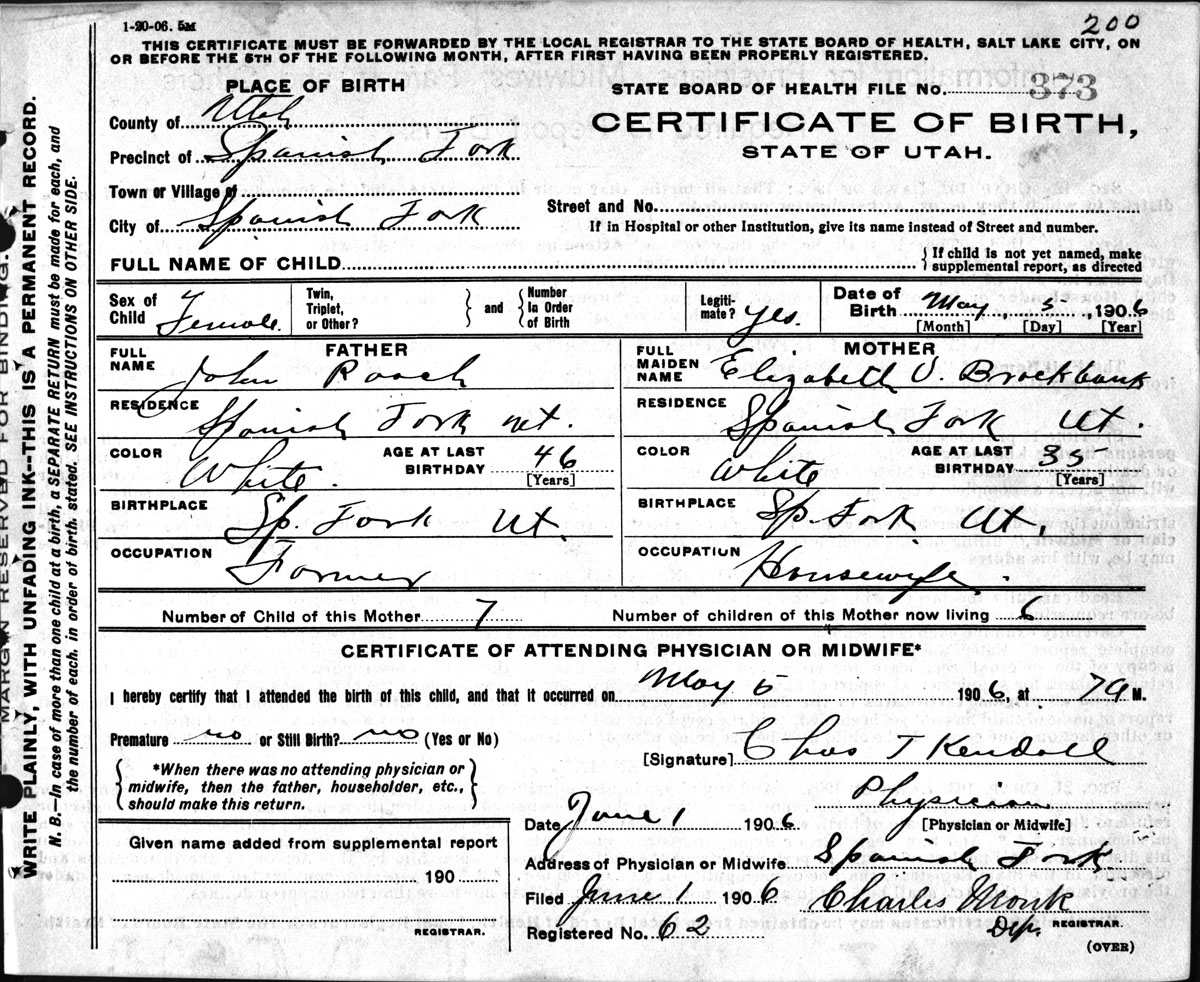 1-20-06. 5M
200
THIS CERTIFICATE MUST BE FORWARDED BY THE LOCAL REGISTRAR TO THE STATE BOARD OF HEALTH, SALT LAKE CITY, ON
OR BEFORE THE 5TH OF THE FOLLOWING MONTH, AFTER FIRST HAVING BEEN PROPERLY REGISTERED.
PLACE OF BIRTH
STATE BOARD OF HEALTH FILE No. 373
County of Utah
CERTIFICATE OF BIRTH,
STATE OF UTAH.
Precinct of Spanish Fork
Town or Village of
Street and No.
City of Spanish Fork
If in Hospital or other Institution, give its name instead of Street and number.
FULL NAME OF CHILD
If child is not yet named, make
supplemental report, as directed
Sex of Child Female
Twin, Triplet, or Other?
and
Number In Order of Birth
Legiti-mate? yes.
Date of Birth May, 5, 1906
[Month] [Day] [Year]
FATHER
FULL NAME John Roach
RESIDENCE Spanish Fork Ut.
COLOR White. AGE AT LAST BIRTHDAY 46 [Years]
BIRTHPLACE Sp. Fork Ut
OCCUPATION Farmer
MOTHER
FULL MAIDEN NAME Elizabeth V. Brockbank
RESIDENCE Spanish Fork Ut.
COLOR White AGE AT LAST BIRTHDAY 35 [Years]
BIRTHPLACE Sp. Fork Ut.
OCCUPATION Housewife.
Number of Child of this Mother 7
Number of children of this Mother now living 6
CERTIFICATE OF ATTENDING PHYSICIAN OR MIDWIFE*
I hereby certify that I attended the birth of this child, and that it occurred on May 5 1906, at 7 A M.
Premature no or Still Birth? no (Yes or No)
[Signature] Chas T Kendall
*When there was no attending physician or
midwife, then the father, householder, etc.,
should make this return.
Physician
[Physician or Midwife]
Date June 1 1906
Given name added from supplemental report
190
REGISTRAR.
Address of Physician or Midwife Spanish Fork
Filed June 1 1906 Charles Monk
Registered No. 62 Dep. REGISTRAR.
(OVER)
MARGIN RESERVED FOR BINDING.
WRITE PLAINLY, WITH UNFADING INK--THIS IS A PERMANENT RECORD.
N. B. In case of more than one child at a birth, a SEPARATE RETURN must be made for each, and
the number of each, in order of birth, stated. SEE INSTRUCTIONS ON OTHER SIDE.